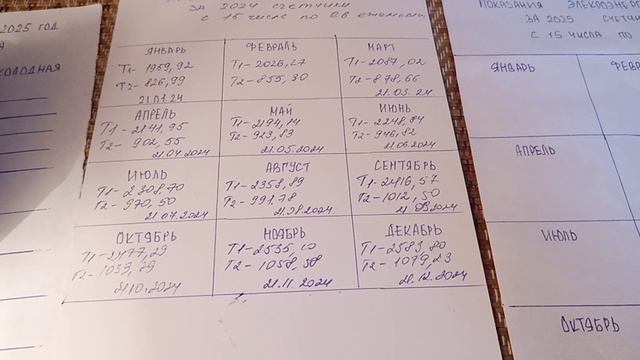 2025 ГОД
ХОЛОДНАЯ
ЗА 2024 СЧЕТЧИКИ
С 15 ЧИСЛА ПО 26
ЯНВАРЬ
Т1-1969,92
Т2-826,99
21.01.24
ФЕВРАЛЬ
Т1-2026,27
Т2-855,30
МАРТ
Т1-2087,02
Т2-878,66
21.03.24
АПРЕЛЬ
Т1-2141,95
Т2-902,55
21.04.2024
МАЙ
Т1-2194,14
Т2-923,83
21.05.2024
ИЮНЬ
Т1-2248,84
Т2-946,82
21.06.2024
ИЮЛЬ
Т1-2308,70
Т2-970,50
21.07.2024
АВГУСТ
Т1-2358,89
Т2-991,78
21.08.2024
СЕНТЯБРЬ
Т1-2416,57
Т2-1012,50
21.09.2024
ОКТЯБРЬ
Т1-2477,29
Т2-1033,79
21.10.2024
НОЯБРЬ
Т1-2535,10
Т2-1058,38
21.11.2024
ДЕКАБРЬ
Т1-2583,80
Т2-1079,23
21.12.2024
ПОКАЗАНИЯ
ЗА 2025
С 15 ЧИСЛА ПО
ЯНВАРЬ
АПРЕЛЬ
ИЮЛЬ
ОКТЯБРЬ